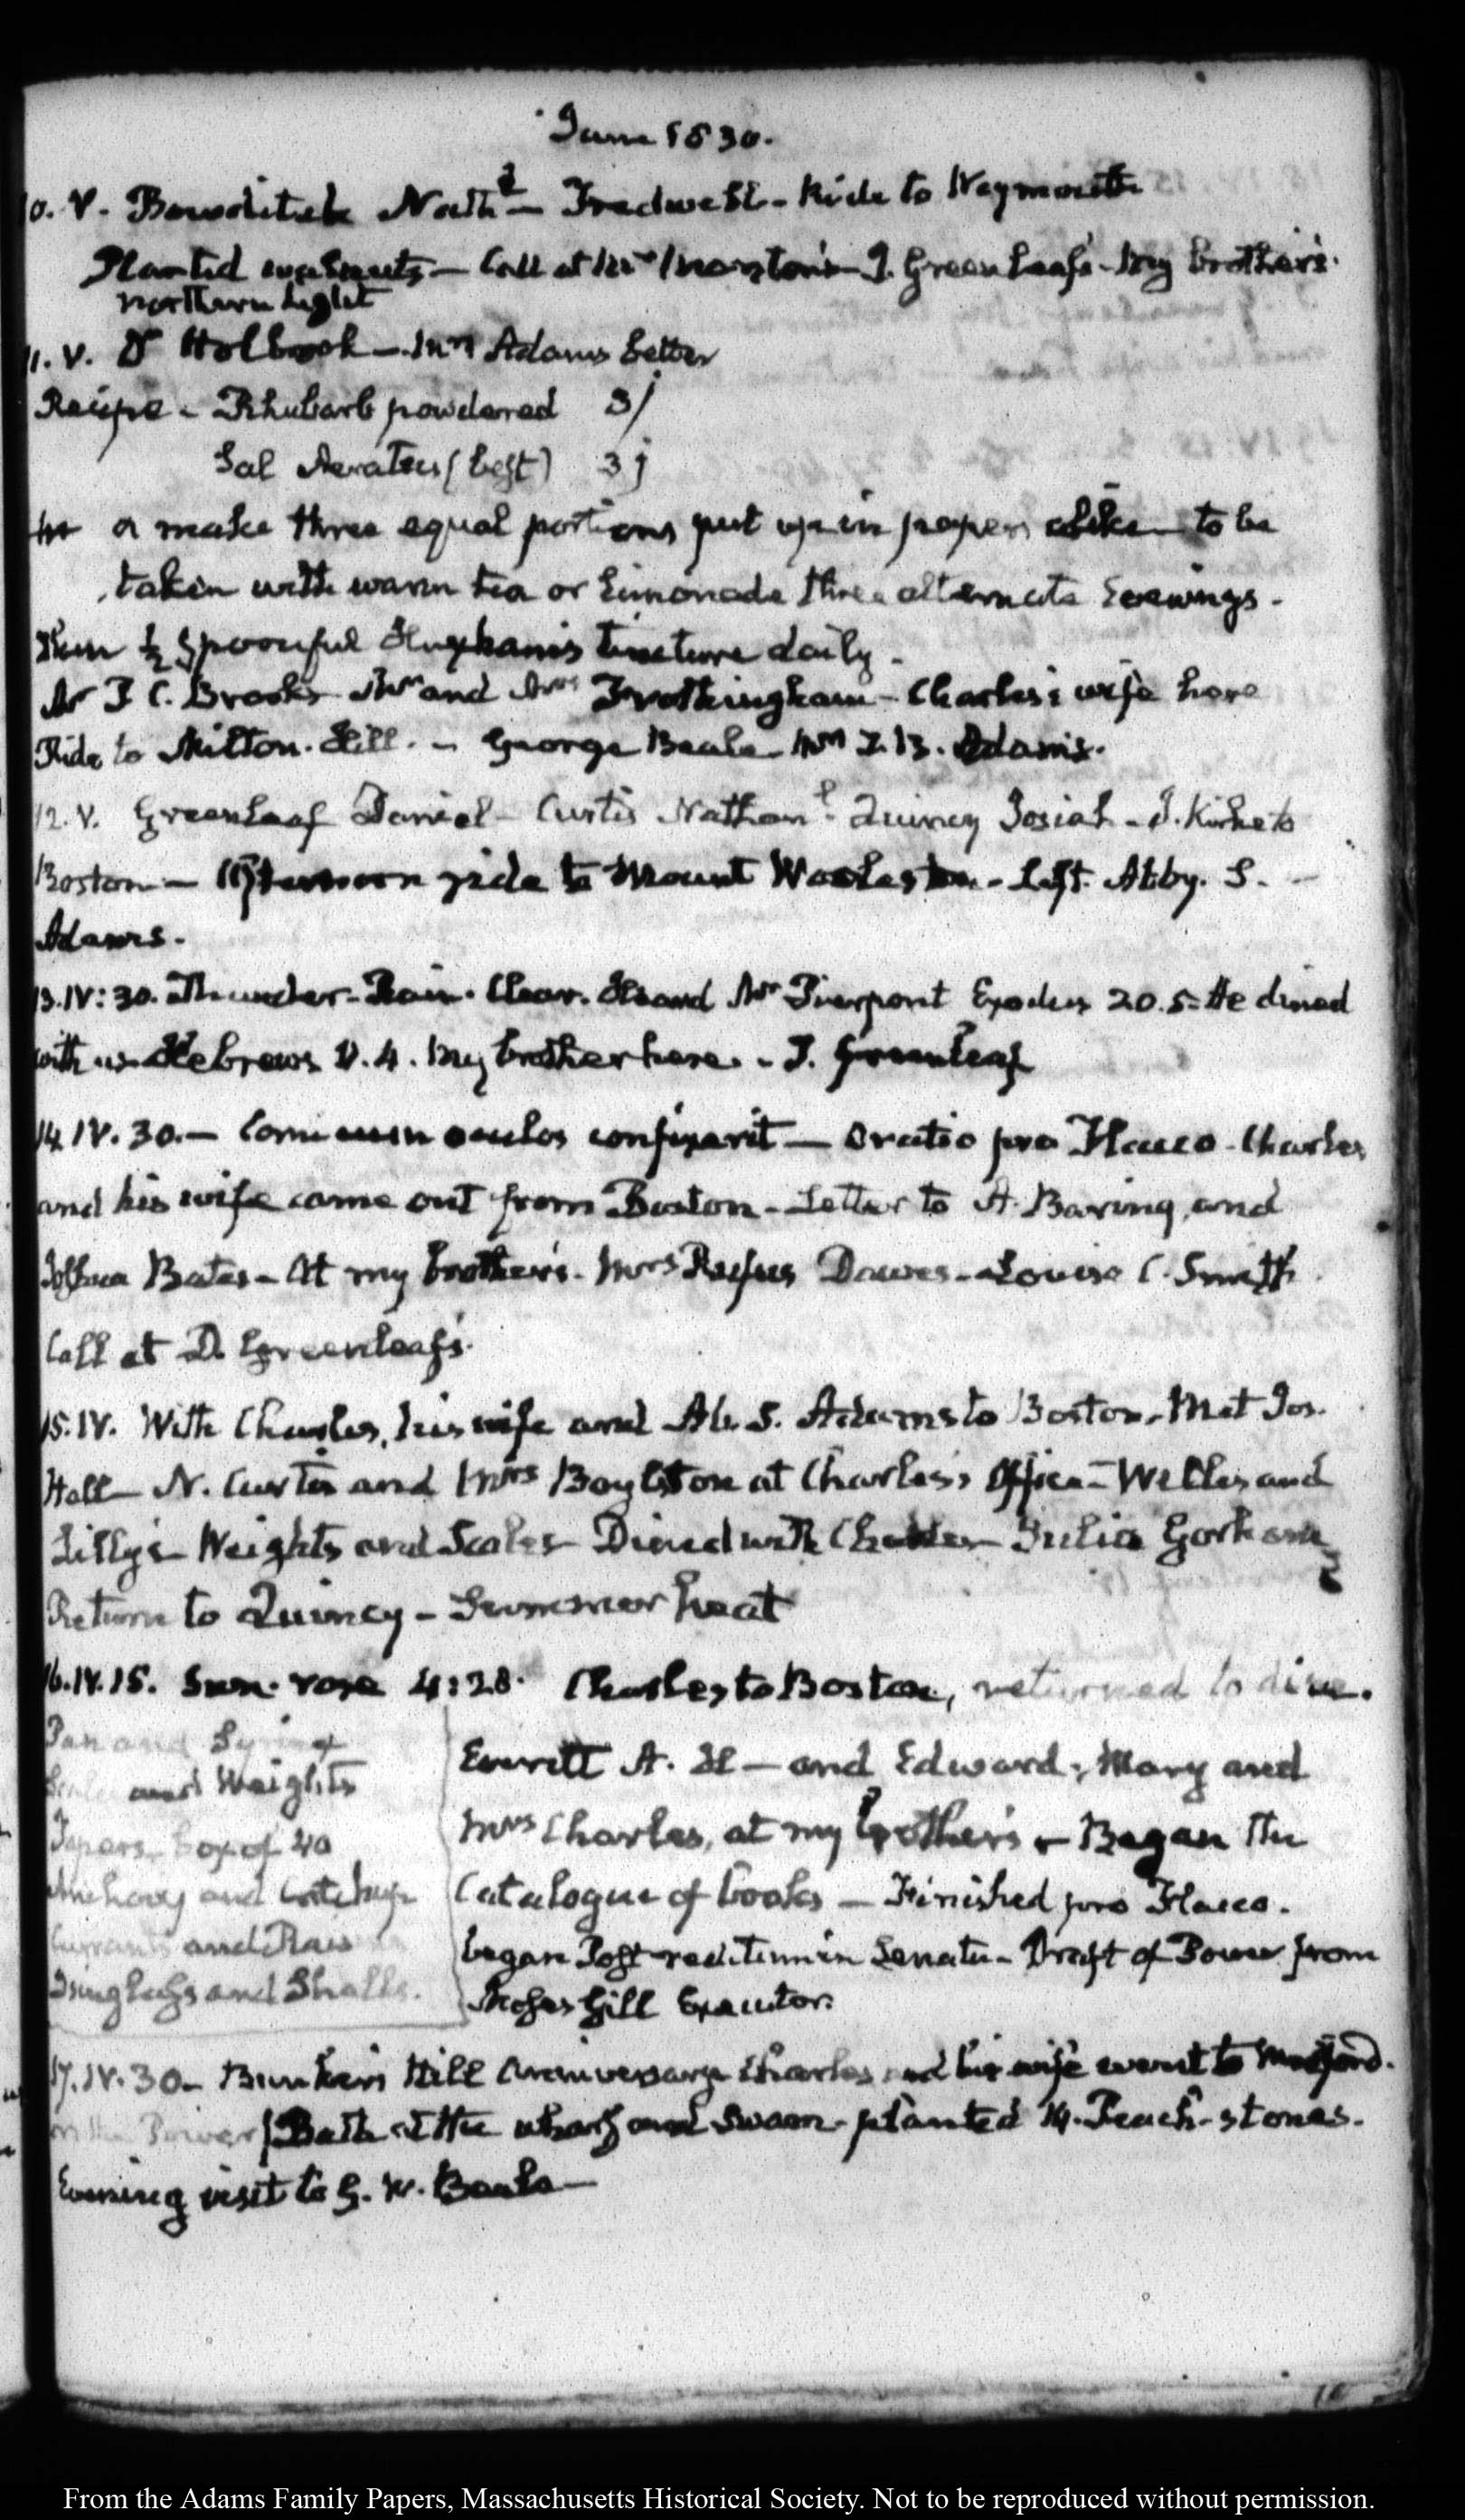 June 1830.
10. V. Bowditch Nath.l — Treadwell - Ride to Weymouth
Planted — Call at Mrs Marston's - T. Greenleaf's - My brother's.
northern light
11. V. Dr Holbrook — Mrs Adams better
Recipe - Rhubarb powdered ʒj
Sal Aeratus (best) ʒj
make three equal portions put up in paper to be
taken with warm tea or Limonade three alternate Evenings.
Then ½ spoonful Huxham's tincture daily.
Mr P. C. Brooks Mr and Mrs Frothingham - Charles's wife here
Ride to Milton. Hill. - George Beale - Mrs T. B. Adams.
12. V. Greenleaf Daniel - Curtis Nathan.l Quincy Josiah - J. Kirke to
Boston — Afternoon ride to Mount Wollaston - Left Abby. S.
Adams.
13. IV:30. Thunder - Rain. Clear. Heard Mr Pierpont Exodus 20.5 - He dined
with us Hebrews V. 4. My brother here. - T. Greenleaf
14. IV. 30. — Cornicum oculos confixerit — Oratio pro Flacco - Charles
and his wife came out from Boston - Letter to A. Baring, and
Joshua Bates - At my brother's. Mrs Rufus Dawes - Louisa C. Smith
Call at D. Greenleaf's.
15. IV. With Charles, his wife and Ab. S. Adams to Boston. Met Jos.
Hall - N. Curtis and Mrs Boylston at Charles's Office - Welles and
Lilly's Weights and Scales - Dined with Charles - Julia Gorham
Return to Quincy - Summer heat
16. IV. 15. Sun rose 4:28. Charles to Boston, returned to dine.
Pan and Syringe
Scales and Weights
Tapers - box of 40
Anchovy and Catchup
Currants and Raisins
Isinglass and Shells.
Everett A. H — and Edward, Mary and
Mrs Charles, at my brother's - Began the
Catalogue of books — Finished pro Flacco.
began Post reditum in Senatu - Draft of Power from
Moses Gill Executor.
17. IV. 30 - Bunker's Hill Anniversary Charles and his wife went to Medford.
on the Power | Bath at the wharf and swam - planted 14. Peach-stones.
Evening visit to G. W. Beale —
From the Adams Family Papers, Massachusetts Historical Society. Not to be reproduced without permission.